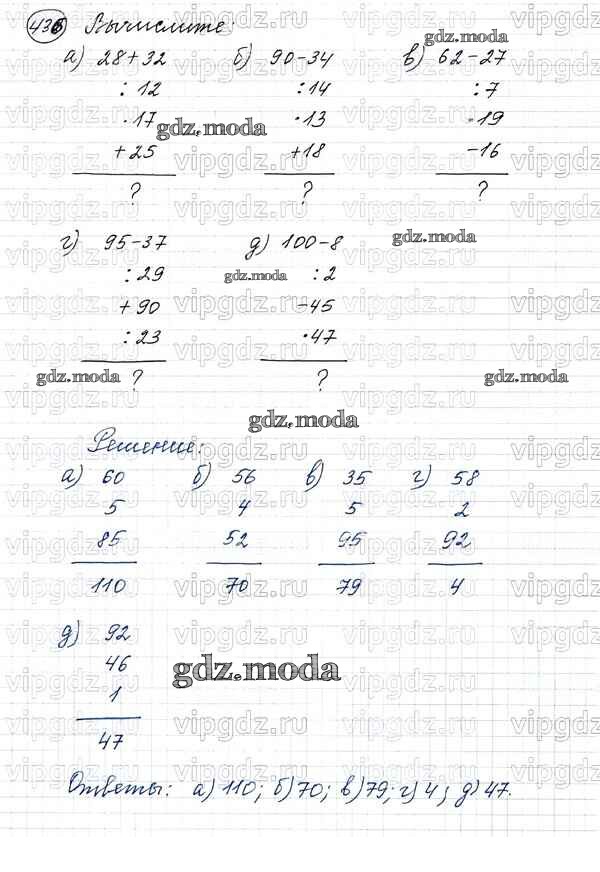 436 Вычислите:
а) 28+32 б) 90-34 в) 62-27
:12 :14 :7
·17 ·13 ·19
+25 +18 -16
? ? ?
г) 95-37 д) 100-8
:29 :2
+90 -45
:23 ·47
? ?
Решение:
а) 60 б) 56 в) 35 г) 58
5 4 5 2
85 52 95 92
110 70 79 4
д) 92
46
1
47
Ответы: а) 110; б) 70; в) 79; г) 4; д) 47.
gdz.moda
vipgdz.ru